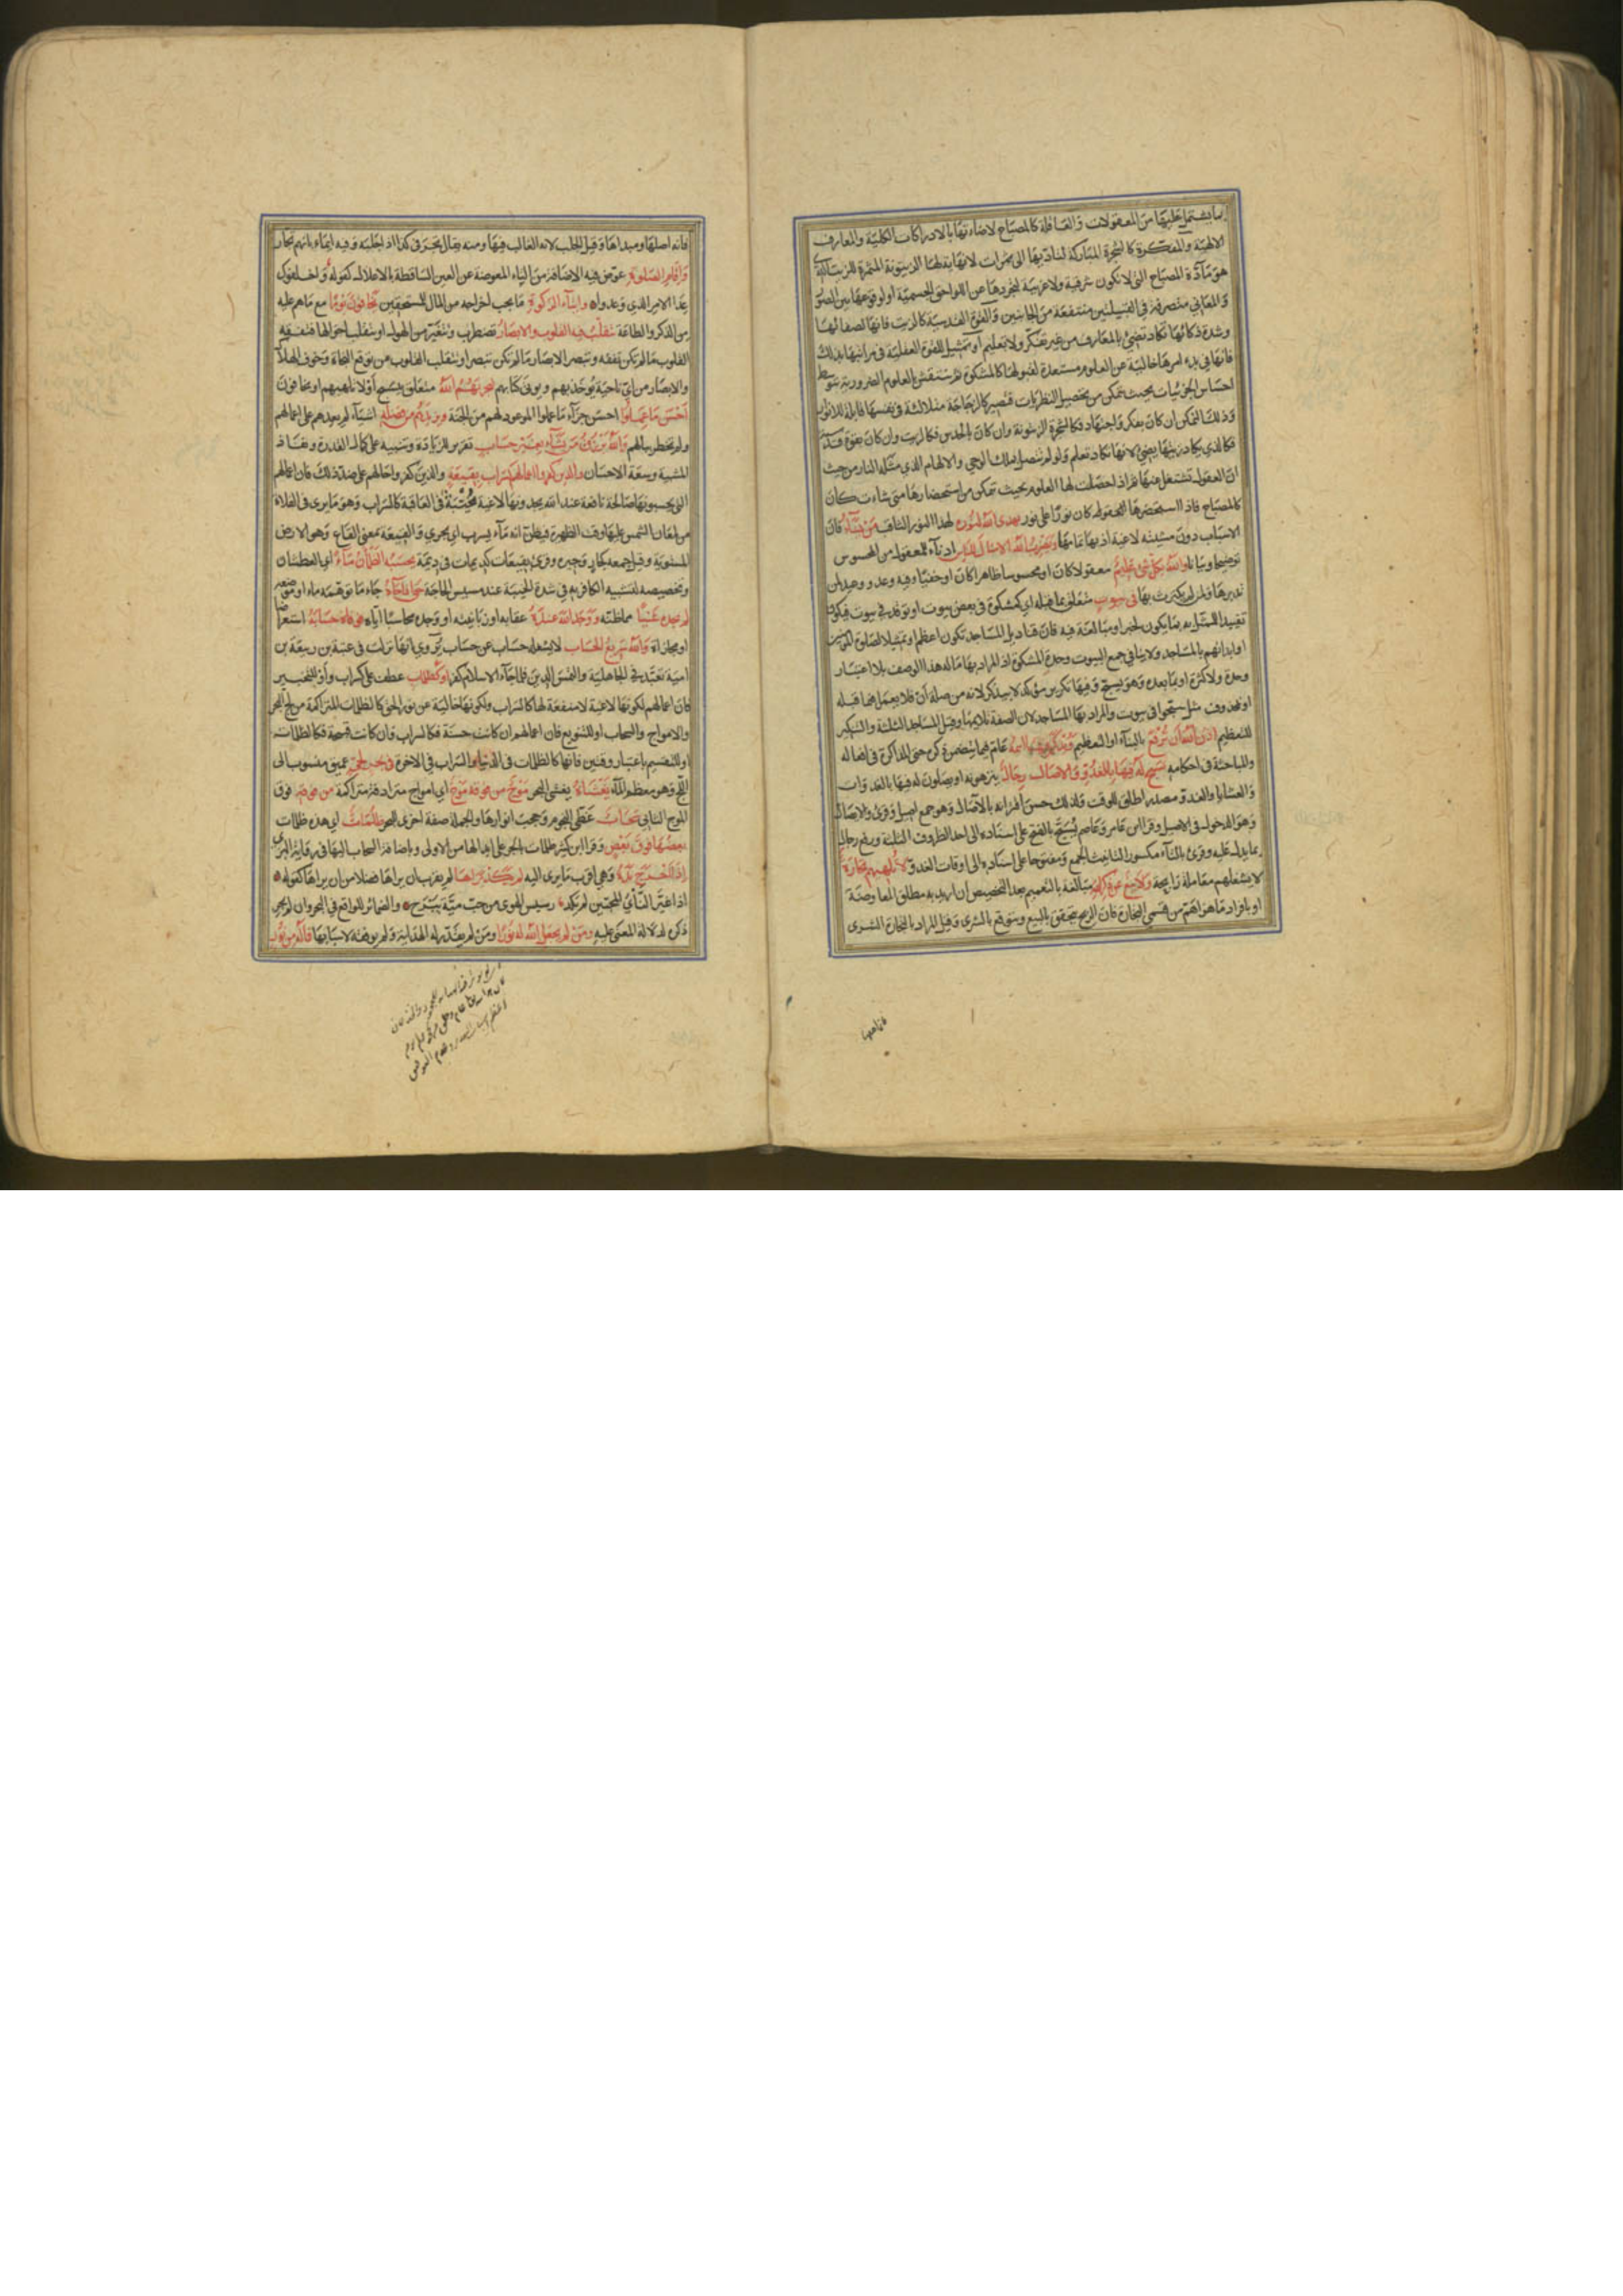 بما يشتمل عليها من المعقولات والعاقلة كالمصباح لاضاءتها بالادراكات الكلية والمعارف
الالهية والمفكرة كالشجرة المباركة لتأديها الى ثمرات لا نهاية لها الزيتونة المثمرة للزيت الذي
هو مآدة المصباح التي لا تكون شرقية ولا غربية لتجردها عن اللواحق الجسمية او لوقوعها بين الصور
والمعاني متصرفة في القبيلتين منتفعة من الجانبين والقوة القدسية كالزيت فانها لصفائها
وشدة ذكائها تكاد تضئ بالمعارف من غير تفكر ولا تعليم او تمثيل للقوة العقلية في مراتبها بذلك
فانها في بدء امرها خالية عن العلوم مستعدة لقبولها كالمشكوة ثم تنتقش بالعلوم الضرورية بتوسط
احساس الجزئيات بحيث تتمكن من تحصيل النظريات فتصير كالزجاجة متلالئة في نفسها قابلة للانوار
وذلك التمكن ان كان بفكر واجتهاد فكالشجرة الزيتونة وان كان بالحدس فكالزيت وان كان بقوة قدسية
فكالذي يكاد زيتها يضئ لانها تكاد تعلم ولو لم تتصل بملك الوحي والالهام الذي مثله النار من حيث
ان العقول تشتعل منها ثم اذا حصلت لها العلوم بحيث تتمكن من استحضارها متى شاءت كان
كالمصباح فاذا استحضرها كان نورا على نور يهدي الله لنوره لهذا النور الثاقب من يشآء فان
الاسباب دون مشيته لاغية اذ بها تمامها ويضرب الله الامثال للناس ادنآء للمعقول من المحسوس
توضيحا وبيانا والله بكل شئ عليم معقولا كان او محسوسا ظاهرا كان او خفيا وفيه وعد ووعيد لمن
تدبرها ولمن لم يكترث بها في بيوت متعلق بما قبله اي كمشكوة في بعض بيوت او توقد في بيوت فيكون
تقييدا للممثل به بما يكون تحبيرا ومبالغة فيه فان قناديل المساجد تكون اعظم او تمثيلا لصلوة المؤمنين
او ابدانهم بالمساجد ولا ينافي جمع البيوت وحدة المشكوة اذ المراد بها ما له هذا الوصف بلا اعتبار
وحدة ولا كثرة او بما بعده وهو يسبح وفيها تكرير مؤكد لا بيذكر لانه من صلة ان فلا يعمل فيما قبله
او بمحذوف مثل سبحوا في بيوت والمراد بها المساجد لان الصفة تلايمها وقيل المساجد الثلثة والتنكير
للتعظيم اذن الله ان ترفع بالبنآء او التعظيم ويذكر فيها اسمه عام فيما يتضمن ذكره حتى المذاكرة في افعاله
والمباحثة في احكامه يسبح له فيها بالغدو والاصال رجال ينزهونه او يصلون له فيها بالغدوات
والعشايا والغدو مصدر اطلق للوقت ولذلك حسن اقترانه بالآصال وهو جمع اصيل وقرئ والايصال
وهو الدخول في الاصيل وقرا ابن عامر وعاصم يسبح بالفتح على اسناده الى احد الظروف الثلثة ورفع رجال
بما يدل عليه وقرئ بالتآء مكسورا لتانيث الجمع ومفتوحا على اسناده الى اوقات الغدو لا تلهيهم تجارة
لا يشغلهم معاملة رابحة ولا بيع عن ذكر الله مبالغة بالتعميم بعد التخصيص ان اريد به مطلق المعاوضة
او بافراد ما هو اهم من قسمي التجارة فان الربح يتحقق بالبيع ويتوقع بالشرى وقيل المراد بالتجارة الشرى
فانه اصلها
فانه اصلها ومبداها وقيل الجلب لانه الغالب فيها ومنه يقال تجر في كذا اذا جلبه وفيه ايماء بانهم تجار
واقام الصلوة عوض فيه الاضافة من التاء المعوضة عن العين الساقطة بالاعلال كقوله واخلفوك
عدا الامر الذي وعدوا وايتآء الزكوة ما يجب اخراجه من المال للمستحقين يخافون يوما مع ما هم عليه
من الذكر والطاعة تتقلب فيه القلوب والابصار تضطرب وتتغير من الهول او تتقلب احوالها فتفقه
القلوب ما لم تكن تفقه وتبصر الابصار ما لم تكن تبصر او تتقلب القلوب من توقع النجاة وخوف الهلاك
والابصار من اي ناحية يوخذ بهم ويوتى كتابهم ليجزيهم الله متعلق بيسبح او لا تلهيهم او يخافون
احسن ما عملوا احسن جزآء ما عملوا الموعود لهم من الجنة ويزيدهم من فضله اشيآء لم يعدهم على اعمالهم
ولم تخطر ببالهم والله يرزق من يشآء بغير حساب تقرير للزيادة وتنبيه على كمال القدرة ونفاذ
المشية وسعة الاحسان والذين كفروا اعمالهم كسراب بقيعة والذين كفروا حالهم على ضد ذلك فان اعمالهم
التي يحسبونها صالحة نافعة عند الله يجدونها لاغية مخيبة في العاقبة كالسراب وهو ما يرى في الفلاة
من لمعان الشمس عليها وقت الظهيرة فيظن انه مآء يسرب اي يجري والقيعة بمعنى القاع وهو الارض
المستوية وقيل جمعه كجار وجيرة وقرئ بقيعات كديمات في ديمة يحسبه الظمآن مآء اي العطشان
وتخصيصه لتشبيه الكافر به في شدة الخيبة عند مسيس الحاجة حتى اذا جآءه جاء ما توهمه ماء او موضعه
لم يجده شيئا مما ظنه ووجد الله عنده عقابه او زبانيته او وجده محاسبا اياه فوفاه حسابه استعراضا
او مجازاة والله سريع الحساب لا يشغله حساب عن حساب روي انها نزلت في عتبة بن ربيعة بن
امية تعبد في الجاهلية والتمس الدين فلما جآء الاسلام كفر او كظلمات عطف على كسراب واو للتخيير
فان اعمالهم لكونها لاغية لا منفعة لها كالسراب ولكونها خالية عن نور الحق كالظلمات المتراكمة من لج البحر
والامواج والسحاب او للتنويع فان اعمالهم ان كانت حسنة فكالسراب وان كانت قبيحة فكالظلمات
او للتقسيم باعتبار وقتين فانها كالظلمات في الدنيا والسراب في الاخرة في بحر لجي عميق منسوب الى
اللج وهو معظم المآء يغشاه يغشى البحر موج من فوقه موج اي امواج مترادفة متراكمة من فوقه فوق
الموج الثاني سحاب غطى النجوم وحجب انوارها والجملة صفة اخرى للبحر ظلمات اي هذه ظلمات
بعضها فوق بعض وقرا ابن كثير ظلمات بالجر على ابدالها من الاولى وباضافة السحاب اليها في رواية البزي
اذا اخرج يده وهي اقرب ما يرى اليه لم يكد يراها لم يقرب ان يراها فضلا من ان يراها كقوله
اذا غير النأي المحبين لم يكد رسيس الهوى من حب مية يبرح والضمائر للواقع في البحر وان لم يجر
ذكره لدلالة المعنى عليه ومن لم يجعل الله له نورا ومن لم يقدر له الهداية ولم يوفقه لاسبابها فما له من نور